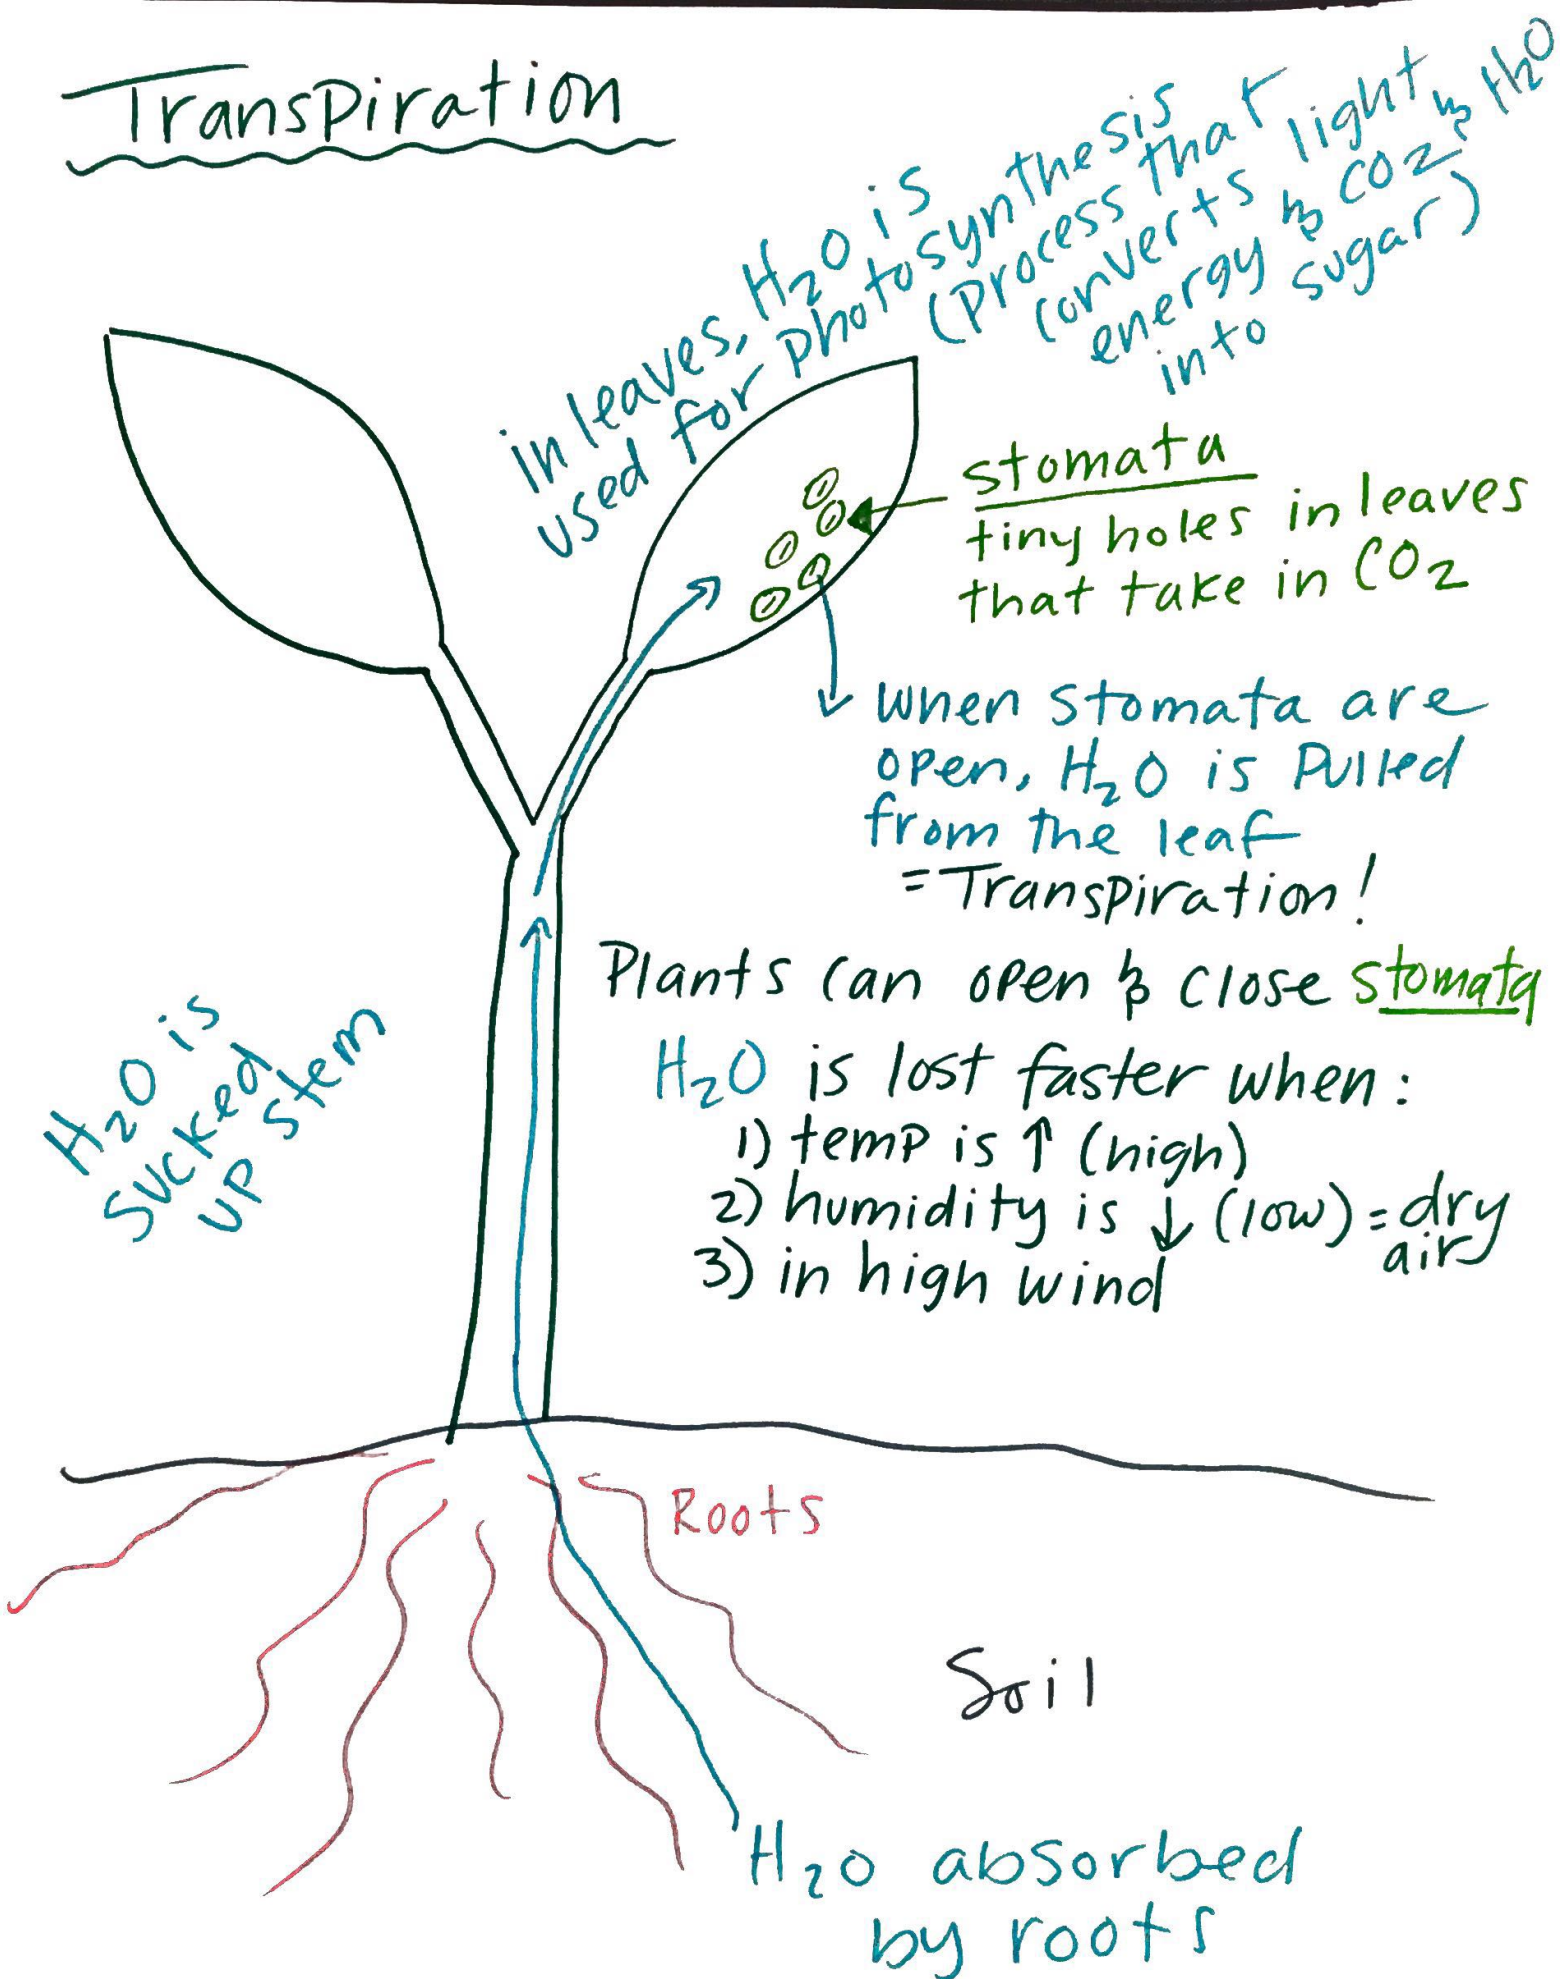 Transpiration
in leaves, H₂O is
used for photosynthesis
(process that
converts light
energy & CO2 & H₂O
into sugar)
stomata
tiny holes in leaves
that take in CO2
when stomata are
open, H₂O is pulled
from the leaf
= Transpiration!
Plants can open & close stomata
H₂O is
sucked
up stem
H₂O is lost faster when:
1) temp is ↑ (high)
2) humidity is ↓ (low) = dry
air
3) in high wind
Roots
Soil
H₂O absorbed
by roots